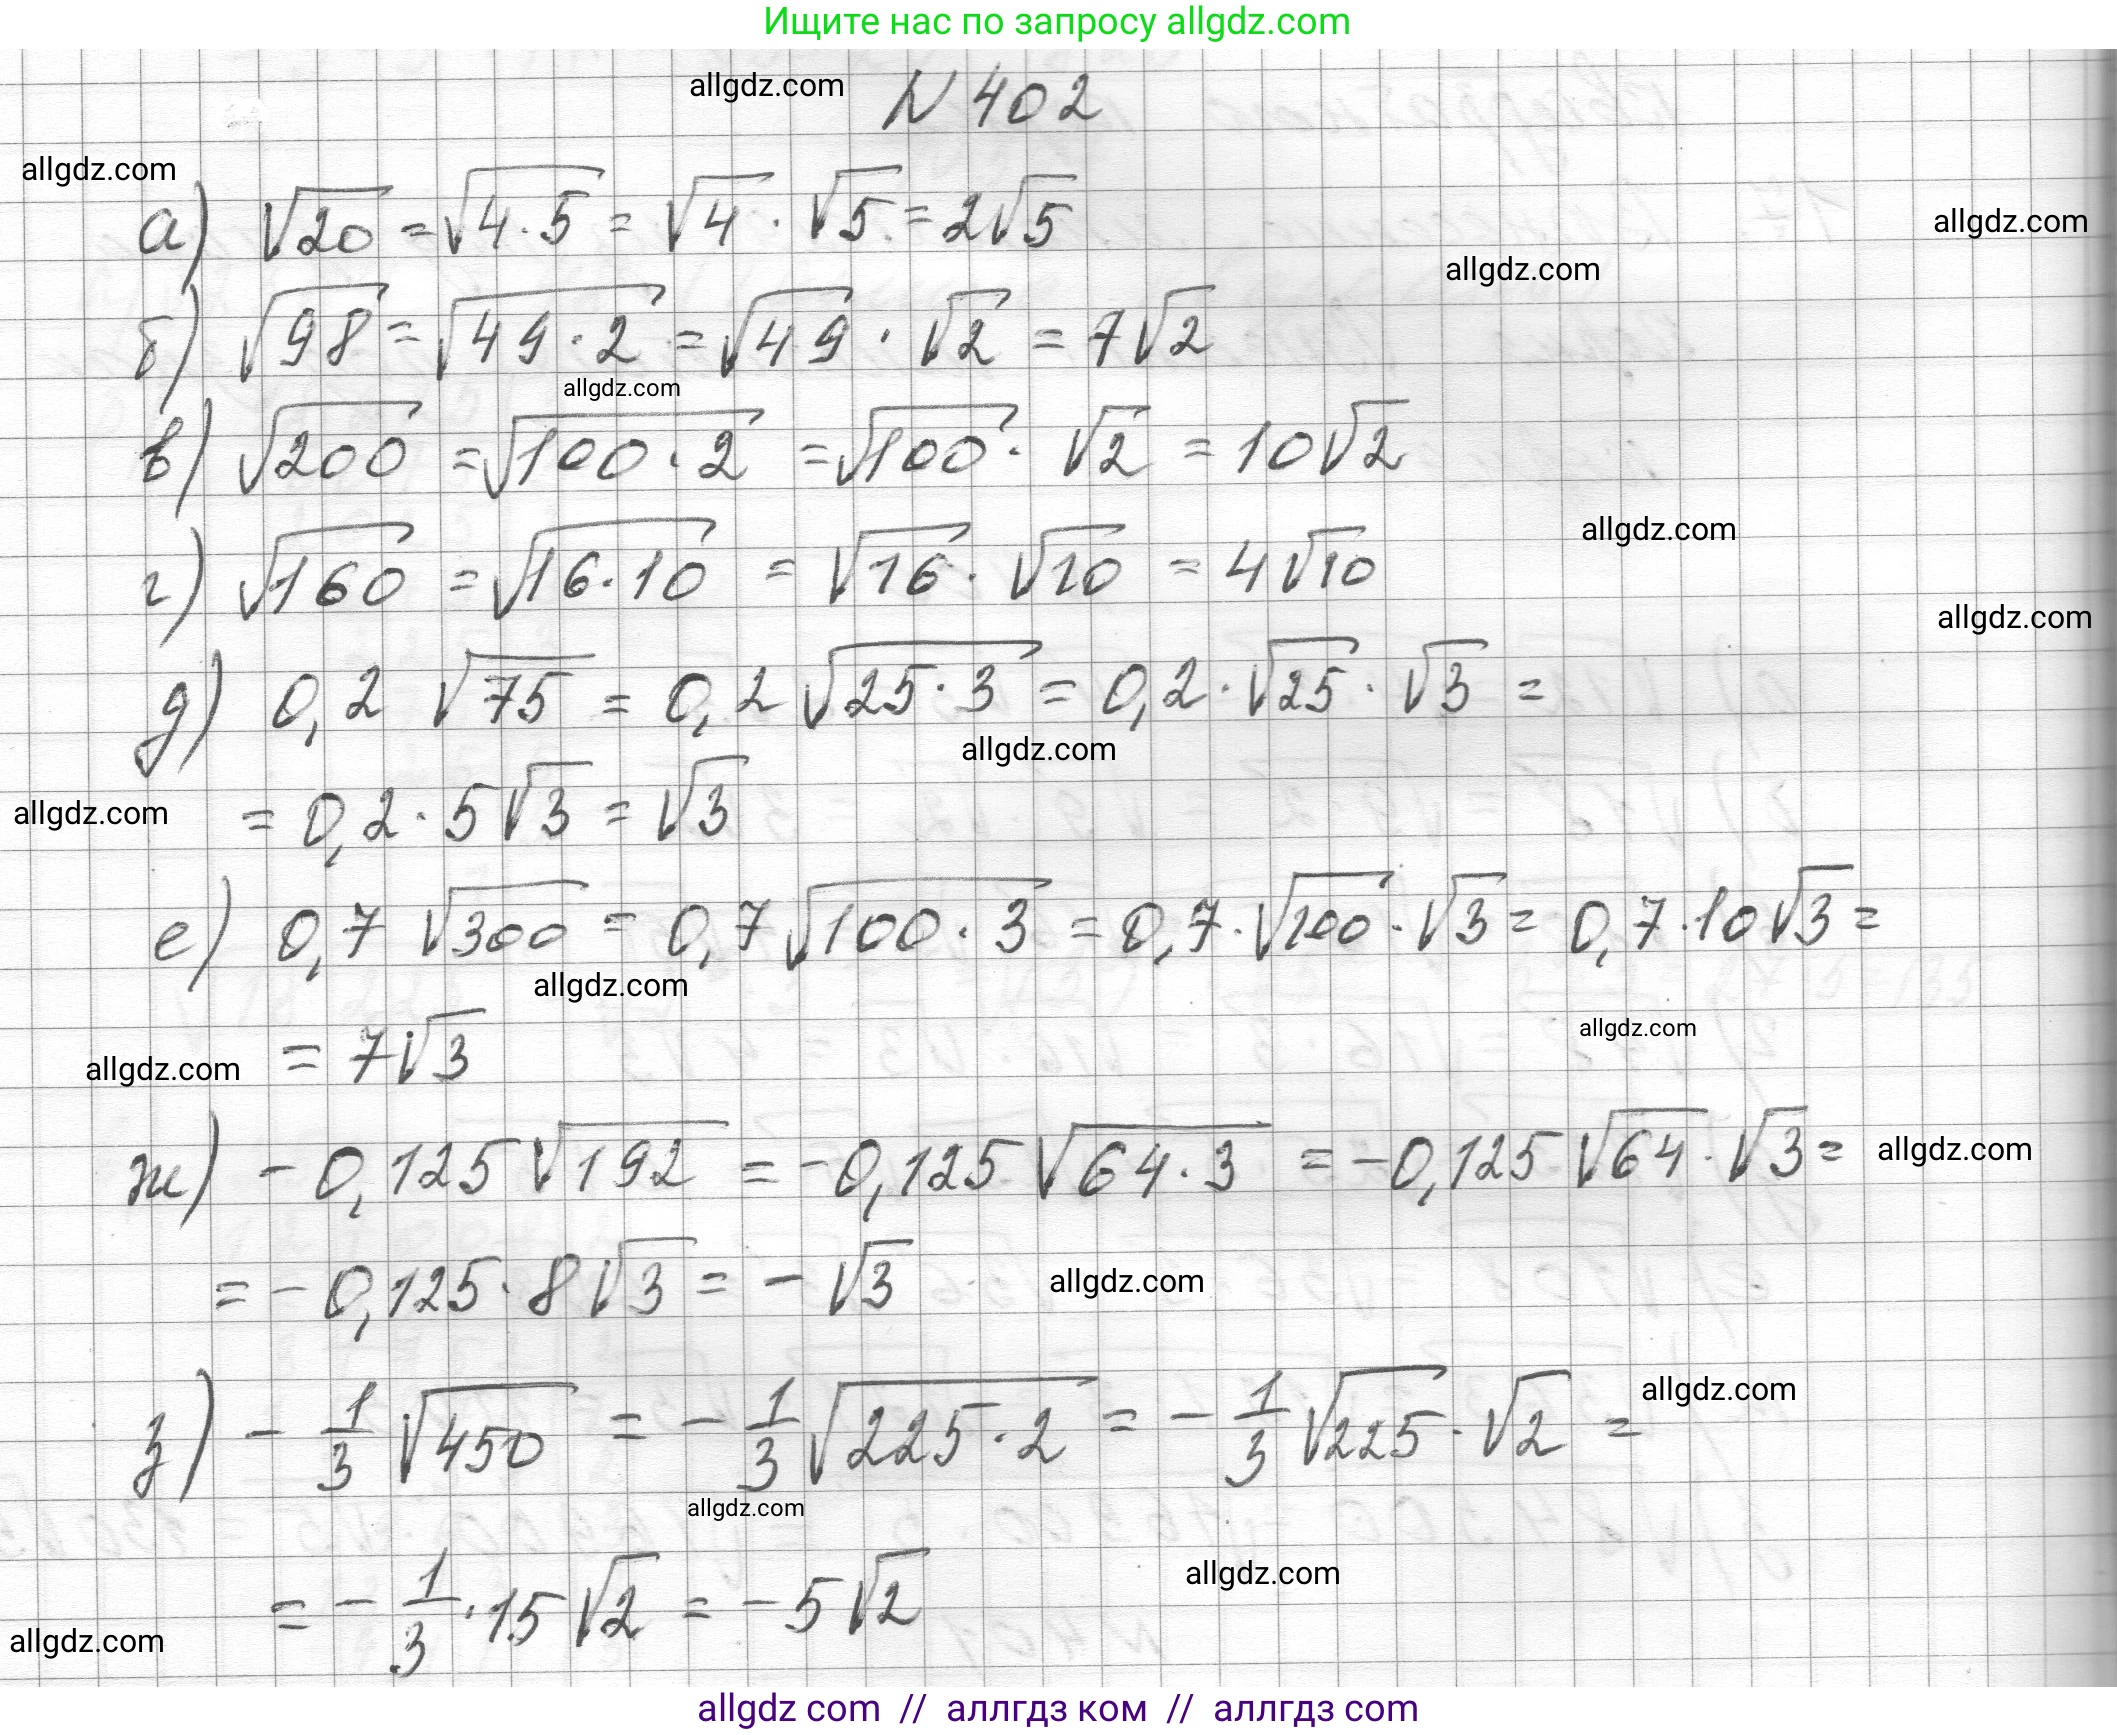 Ищите нас по запросу allgdz.com
allgdz.com
N 402
allgdz.com
а) √20 = √4·5 = √4 · √5 = 2√5
allgdz.com
allgdz.com
б) √98 = √49·2 = √49 · √2 = 7√2
allgdz.com
в) √200 = √100·2 = √100 · √2 = 10√2
allgdz.com
г) √160 = √16·10 = √16 · √10 = 4√10
allgdz.com
д) 0,2 √75 = 0,2 √25·3 = 0,2 · √25 · √3 =
allgdz.com
allgdz.com
= 0,2 · 5√3 = √3
е) 0,7 √300 = 0,7 √100·3 = 0,7 · √100 · √3 = 0,7 · 10√3 =
allgdz.com
allgdz.com
allgdz.com
= 7√3
ж) -0,125√192 = -0,125√64·3 = -0,125√64 · √3 =
allgdz.com
= -0,125 · 8√3 = -√3
allgdz.com
з) - 1/3 √450 = - 1/3 √225·2 = - 1/3 √225 · √2 =
allgdz.com
allgdz.com
= - 1/3 · 15√2 = -5√2
allgdz.com
allgdz.com
allgdz com // аллгдз ком // аллгдз com